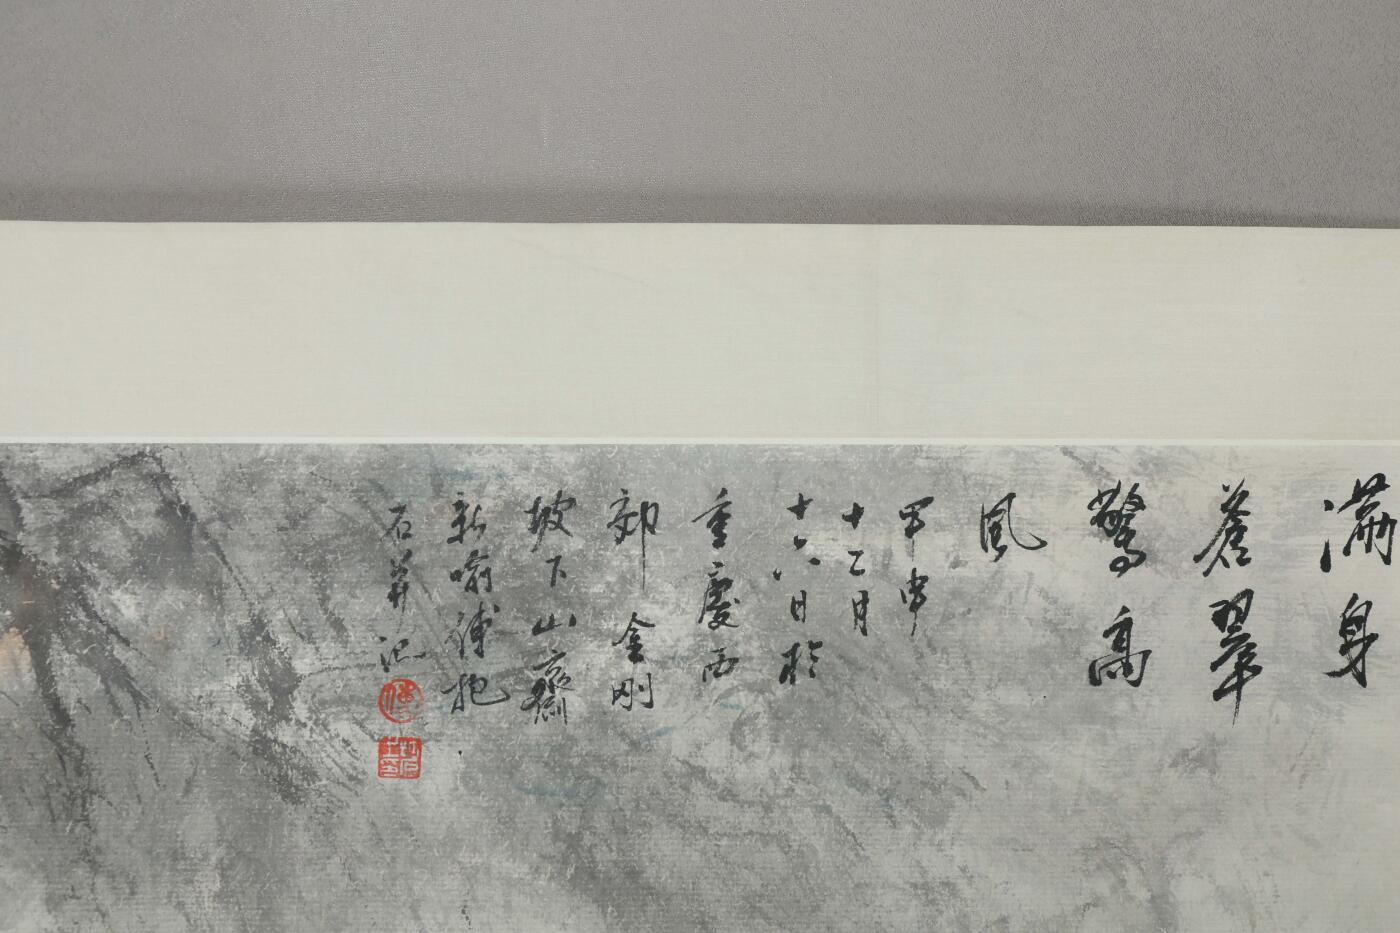 满身
蒼翠
驚高
風
甲申
十二月
十六日於
重慶西
郊金剛
坡下山齋
新喻傅抱
石并記